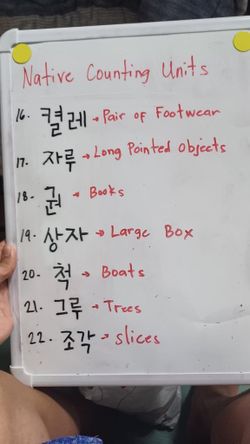 Native Counting Units
16. 켤레 → Pair of Footwear
17. 자루 → Long Pointed Objects
18. 권 → Books
19. 상자 → Large Box
20. 척 → Boats
21. 그루 → Trees
22. 조각 → slices